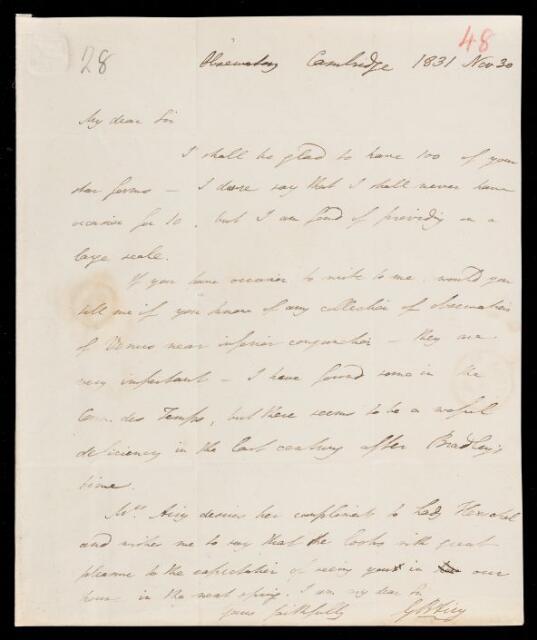 28
48
Observatory Cambridge 1831 Nov 30
My dear Sir
I shall be glad to have 100 of your
star forms — I dare say that I shall never have
occasion for 10, but I am fond of providing on a
large scale.
If you have occasion to write to me, would you
tell me if you know of any collection of observations
of Venus near inferior conjunction — they are
very important — I have found some in the
Conn. des Temps, but there seems to be a woful
deficiency in the last century after Bradley's
time.
Mrs Airy desires her compliments to Lady Herschel
and wishes me to say that she looks with great
pleasure to the expectation of seeing you in our
house in the next spring. I am my dear Sir
yours faithfully G B Airy